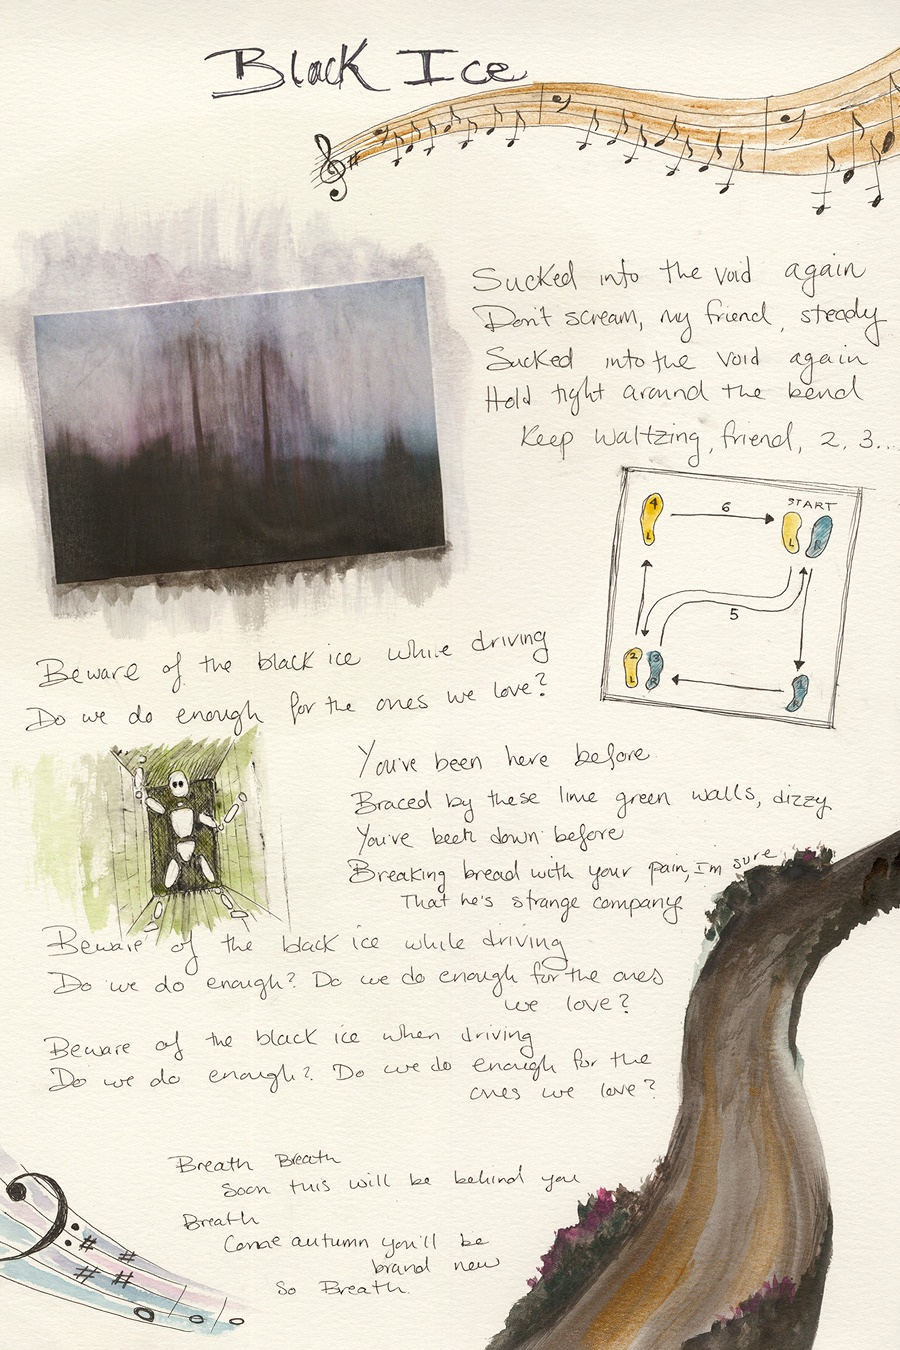 Black Ice
Sucked into the void again
Don't scream, my friend, steady
Sucked into the void again
Hold tight around the bend
Keep waltzing, friend, 2, 3...
START
4
L
6
L
R
5
2
L
3
R
1
R
Beware of the black ice while driving
Do we do enough for the ones we love?
You've been here before
Braced by these lime green walls, dizzy
You've been down before
Breaking bread with your pain, I'm sure
That he's strange company
Beware of the black ice while driving
Do we do enough? Do we do enough for the ones
we love?
Beware of the black ice when driving
Do we do enough? Do we do enough for the
ones we love?
Breath Breath
Soon this will be behind you
Breath
Come autumn you'll be
brand new
So Breath.